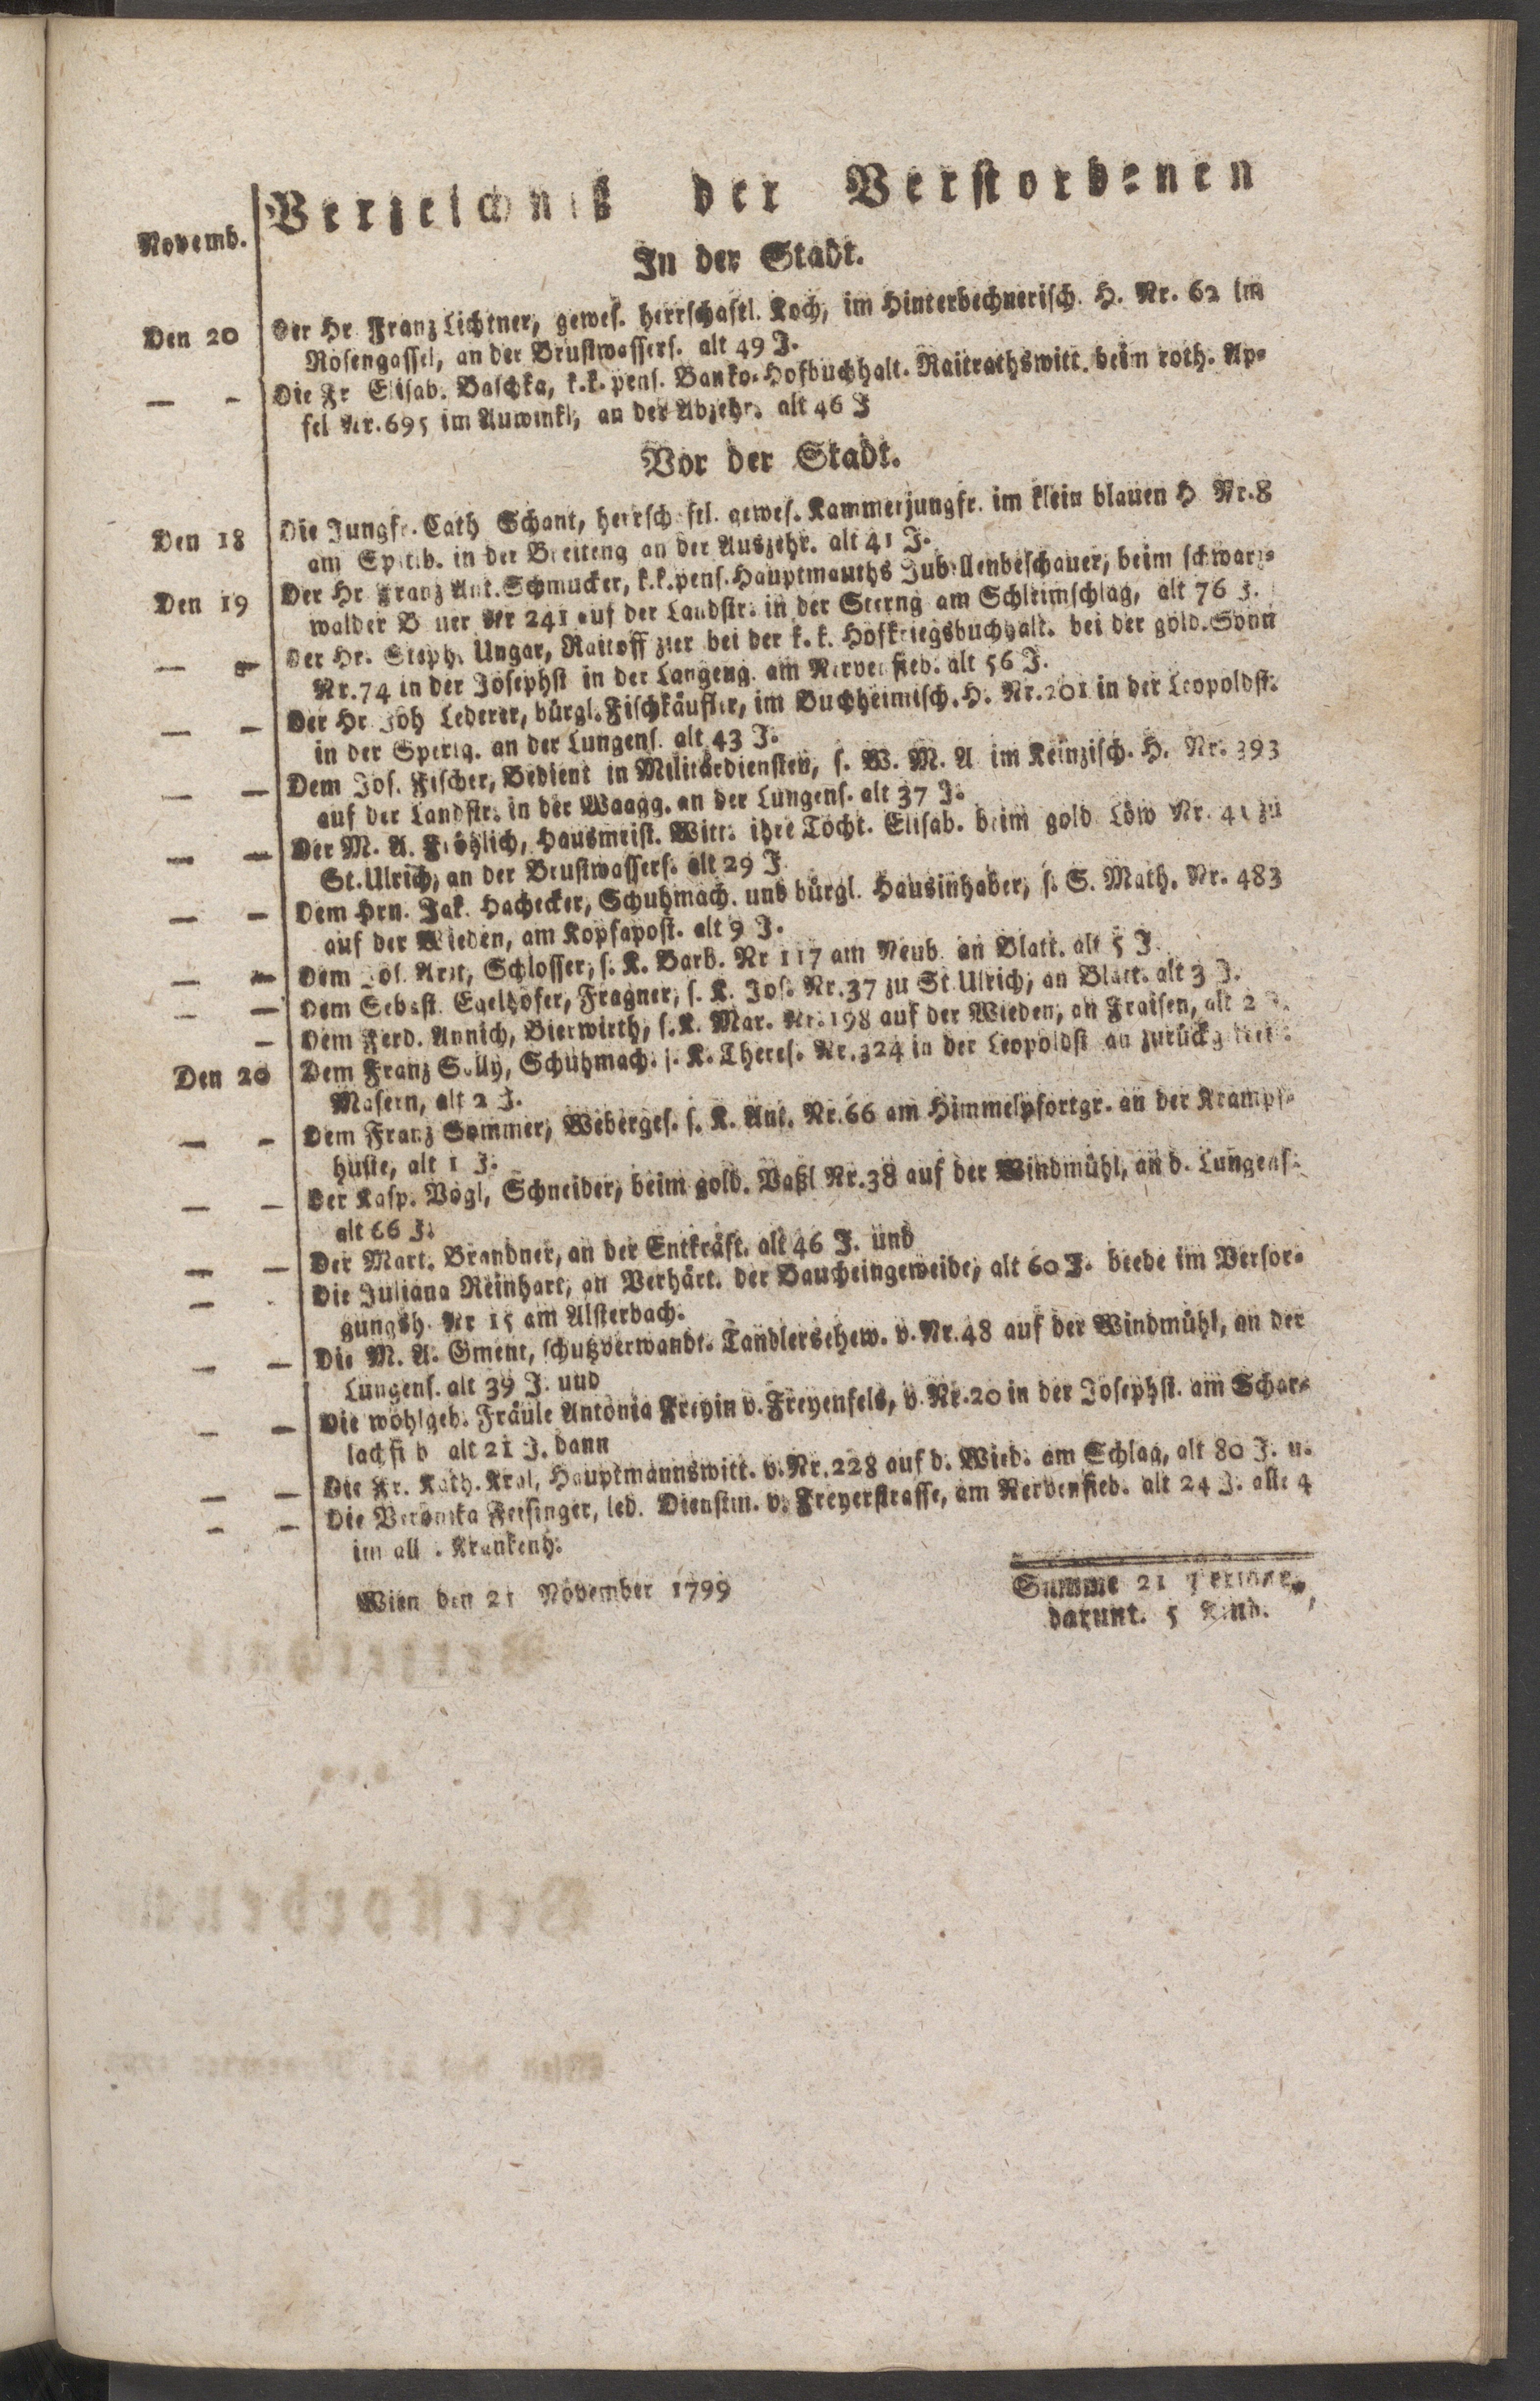 Verzeichniß der Verstorbenen
Novemb.
In der Stadt.
Den 20 Der Hr Franz Lichtner, gewes. herrschaftl. Koch, im Hinterbechnerisch. H. Nr. 62 im
Rosengassel, an der Brustwassers. alt 49 J.
— - Die Fr Elisab. Baschka, k.k. pens. Banko-Hofbuchhalt. Raitrathswitt. beim roth. Ap-
fel Nr. 695 im Auwinkl, an der Abzehr. alt 46 J
Vor der Stadt.
Den 18 Die Jungfr. Cath Schant, herrschaftl. gewes. Kammerjungfr. im klein blauen H Nr. 8
am Spitlb. in der Breiteng an der Auszehr. alt 41 J.
Den 19 Der Hr Franz Ant. Schmucker, k.k. pens. Hauptmauths Jubellenbeschauer, beim schwarz-
walder B uer Nr 241 auf der Landstr. in der Sterng am Schleimschlag, alt 76 J.
— - Der Hr. Steph. Ungar, Raitoff zier bei der k. k. Hofkriegsbuchhalt. bei der gold. Sonn
Nr. 74 in der Josephst in der Langeng. am Nervenfieb. alt 56 J.
— - Der Hr Joh Lederer, bürgl. Fischkäufler, im Buchheimisch. H. Nr. 201 in der Leopoldst.
in der Sperlg. an der Lungens. alt 43 J.
— — Dem Jos. Fischer, Bedient in Militärdiensten, s. W. M. A im Keinzisch. H. Nr. 393
auf der Landstr. in der Waagg. an der Lungens. alt 37 J.
— — Der M. A. Fröhlich, Hausmeist. Witt. ihre Tocht. Elisab. beim gold Löw Nr. 41 zu
St. Ulrich, an der Brustwassers. alt 29 J
— — Dem Hrn. Jak. Hachecker, Schuhmach. und bürgl. Hausinhaber, s. S. Math. Nr. 483
auf der Wieden, am Kopfapost. alt 9 J.
— — Dem Jos. Arzt, Schlosser, s. K. Barb. Nr 117 am Neub an Blatt. alt 5 J.
— — Dem Sebast. Egelhofer, Fragner, s. K. Jos. Nr. 37 zu St Ulrich, an Blatt. alt 3 J.
— Dem Ferd. Annich, Bierwirth, s. K. Mar. Nr. 198 auf der Wieden, an Fraisen, alt 2 J.
Den 20 Dem Franz Sully, Schuhmach. s. K. Theres. Nr. 324 in der Leopoldst an
Masern, alt 2 J.
— - Dem Franz Sommer, Weberges. s. K. Ant. Nr. 66 am Himmelpfortgr. an der Krampf-
huste, alt 1 J.
— - Der Kasp. Vogl, Schneider, beim gold. Vaßl Nr. 38 auf der Windmühl, an d. Lungens.
alt 66 J.
— — Der Mart. Brandner, an der Entkräft. alt 46 J. und
— - Die Juliana Reinhart, an Verhärt. der Baucheingeweide, alt 60 J. beede im Versor-
gungsh. Nr 15 am Alsterbach.
— — Die M. A. Gment, schutzverwandt. Tandlersehew. v. Nr. 48 auf der Windmühl, an der
Lungens. alt 39 J. und
— — Die wohlgeb. Fräule Antonia Freyin v. Freyenfels, v. Nr. 20 in der Josephst. am Schar-
lachfi b alt 21 J. dann
— — Die Fr. Kath. Kral, Hauptmannswitt. v. Nr. 228 auf d. Wied. am Schlag, alt 80 J. u.
— — Die Veronika Feisinger, led. Dienstm. v. Freyerstrasse, am Nervenfieb. alt 24 J. alle 4
im all . Krankenh.
Wien den 21 November 1799
Summe 21 Personen,
darunt. 5 Kind.